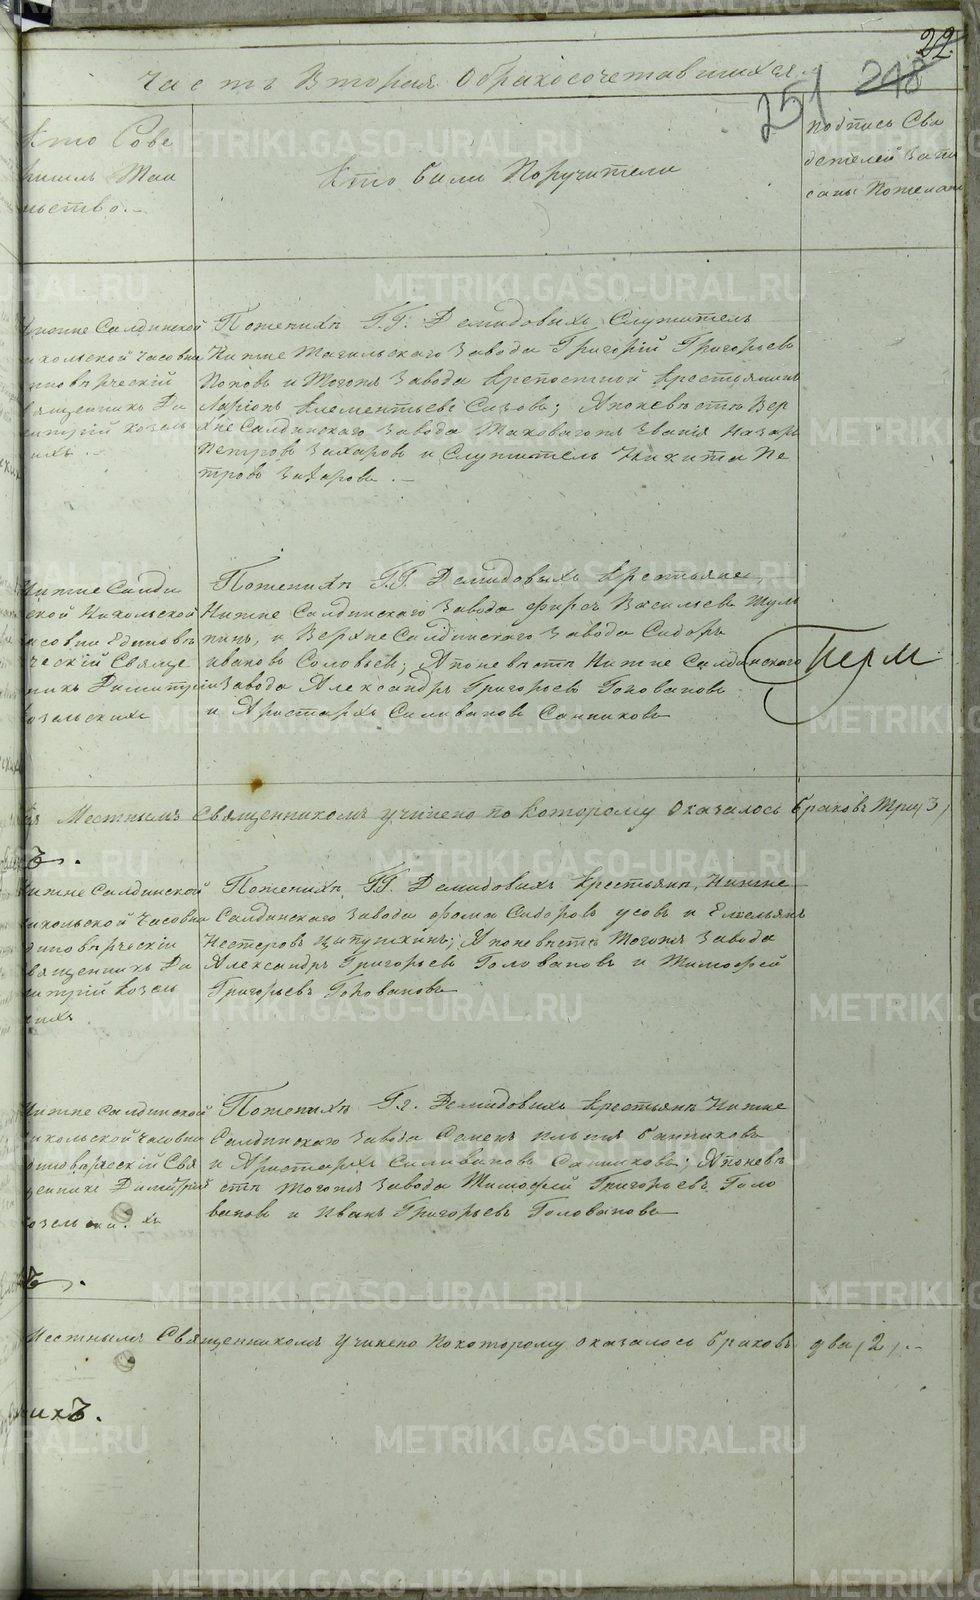 22
Часть Вторая Обракосочетавшихся.
251 248
Кто Сове
ршилъ Таи
ньство.
Кто были Поручители
подпись Сви
детелей Запи
саны Пожелан
Нижне Салдинской
икольской Часовни
диноверческій
вященникъ Ди
митрій Козель
ихъ.
Поженихѣ Г.Г. Демидовыхъ Служитель
Нижне Тагильскаго Завода Григорій Григорьевъ
Поповъ и Тогожъ Завода Крепостной Крестьянинъ
Ларіонъ Клементьевъ Сизовъ; Апоневѣстѣ Вер
хне Салдинскаго Завода Таковагожъ Званія Назаръ
Петровъ Захаровъ и Служитель Никита Пе
тровъ Захаровъ.
Нижне Салди
ской Никольской
часовни Единовѣ
ческій Свяще
никъ Димитрій
Козельскихъ
Поженихѣ Г.Г. Демидовыхъ Крестьяне,
Нижне Салдинскаго Завода Фирсъ Васильевъ Шуль
пинъ, и Верхне Салдинскаго Завода Сидоръ
Ивановъ Соловьевъ; Апоневѣстѣ Нижне Салдинскаго
Завода Александръ Григорьевъ Головановъ
и Аристархъ Силивановъ Санниковъ
Перм
Местнымъ Священникомъ учинено по Которому Оказалось браковъ Три, 3,
Нижне Салдинской
икольской Часовни
диновѣрческіи
вященникъ Ди
митрій Козель
ихъ
Поженихѣ Г.Г. Демидовыхъ Крестьянъ, Нижне
Салдинскаго Завода Фома Сидоровъ Усовъ и Емельянъ
Нестеровъ Ципушкинъ; Апоневѣстѣ Тогожъ Завода
Александръ Григорьевъ Головановъ и Тимофей
Григорьевъ Головановъ
Нижне Салдинской
икольской Часовни
диноверческій Свя
щенникъ Димитрій
озельски. хъ
Поженихѣ Г.г. Демидовыхъ Крестьянъ Нижне
Салдинскаго Завода Семенъ Ильинъ Банниковъ
и Аристархъ Силивановъ Санниковъ; Апоневѣ
стѣ Тогожъ Завода Тимофей Григорьевъ Голо
вановъ и Иванъ Григорьевъ Головановъ
Местнымъ Священникомъ Учинено Покоторому Оказалось браковъ два, 2,.
ихъ.
METRIKI.GASO-URAL.RU